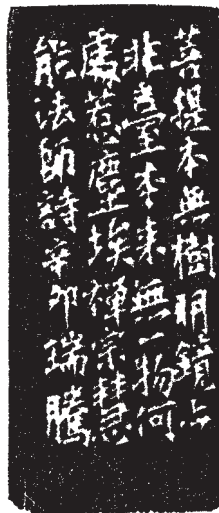 菩提本無樹明鏡亦
非臺本来無一物何
處惹塵埃禪宗慧
能法師詩辛卯瑞騰